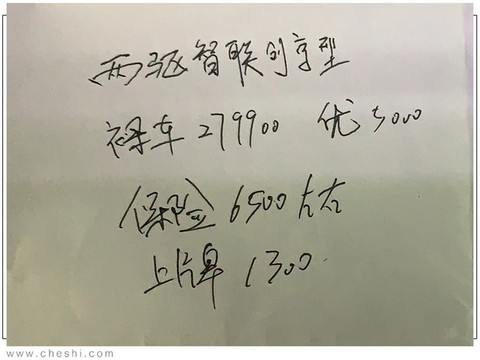 两驱智联创享型
裸车 279900 优 5000
保险 6500 左右
上牌 1300.
www.cheshi.com